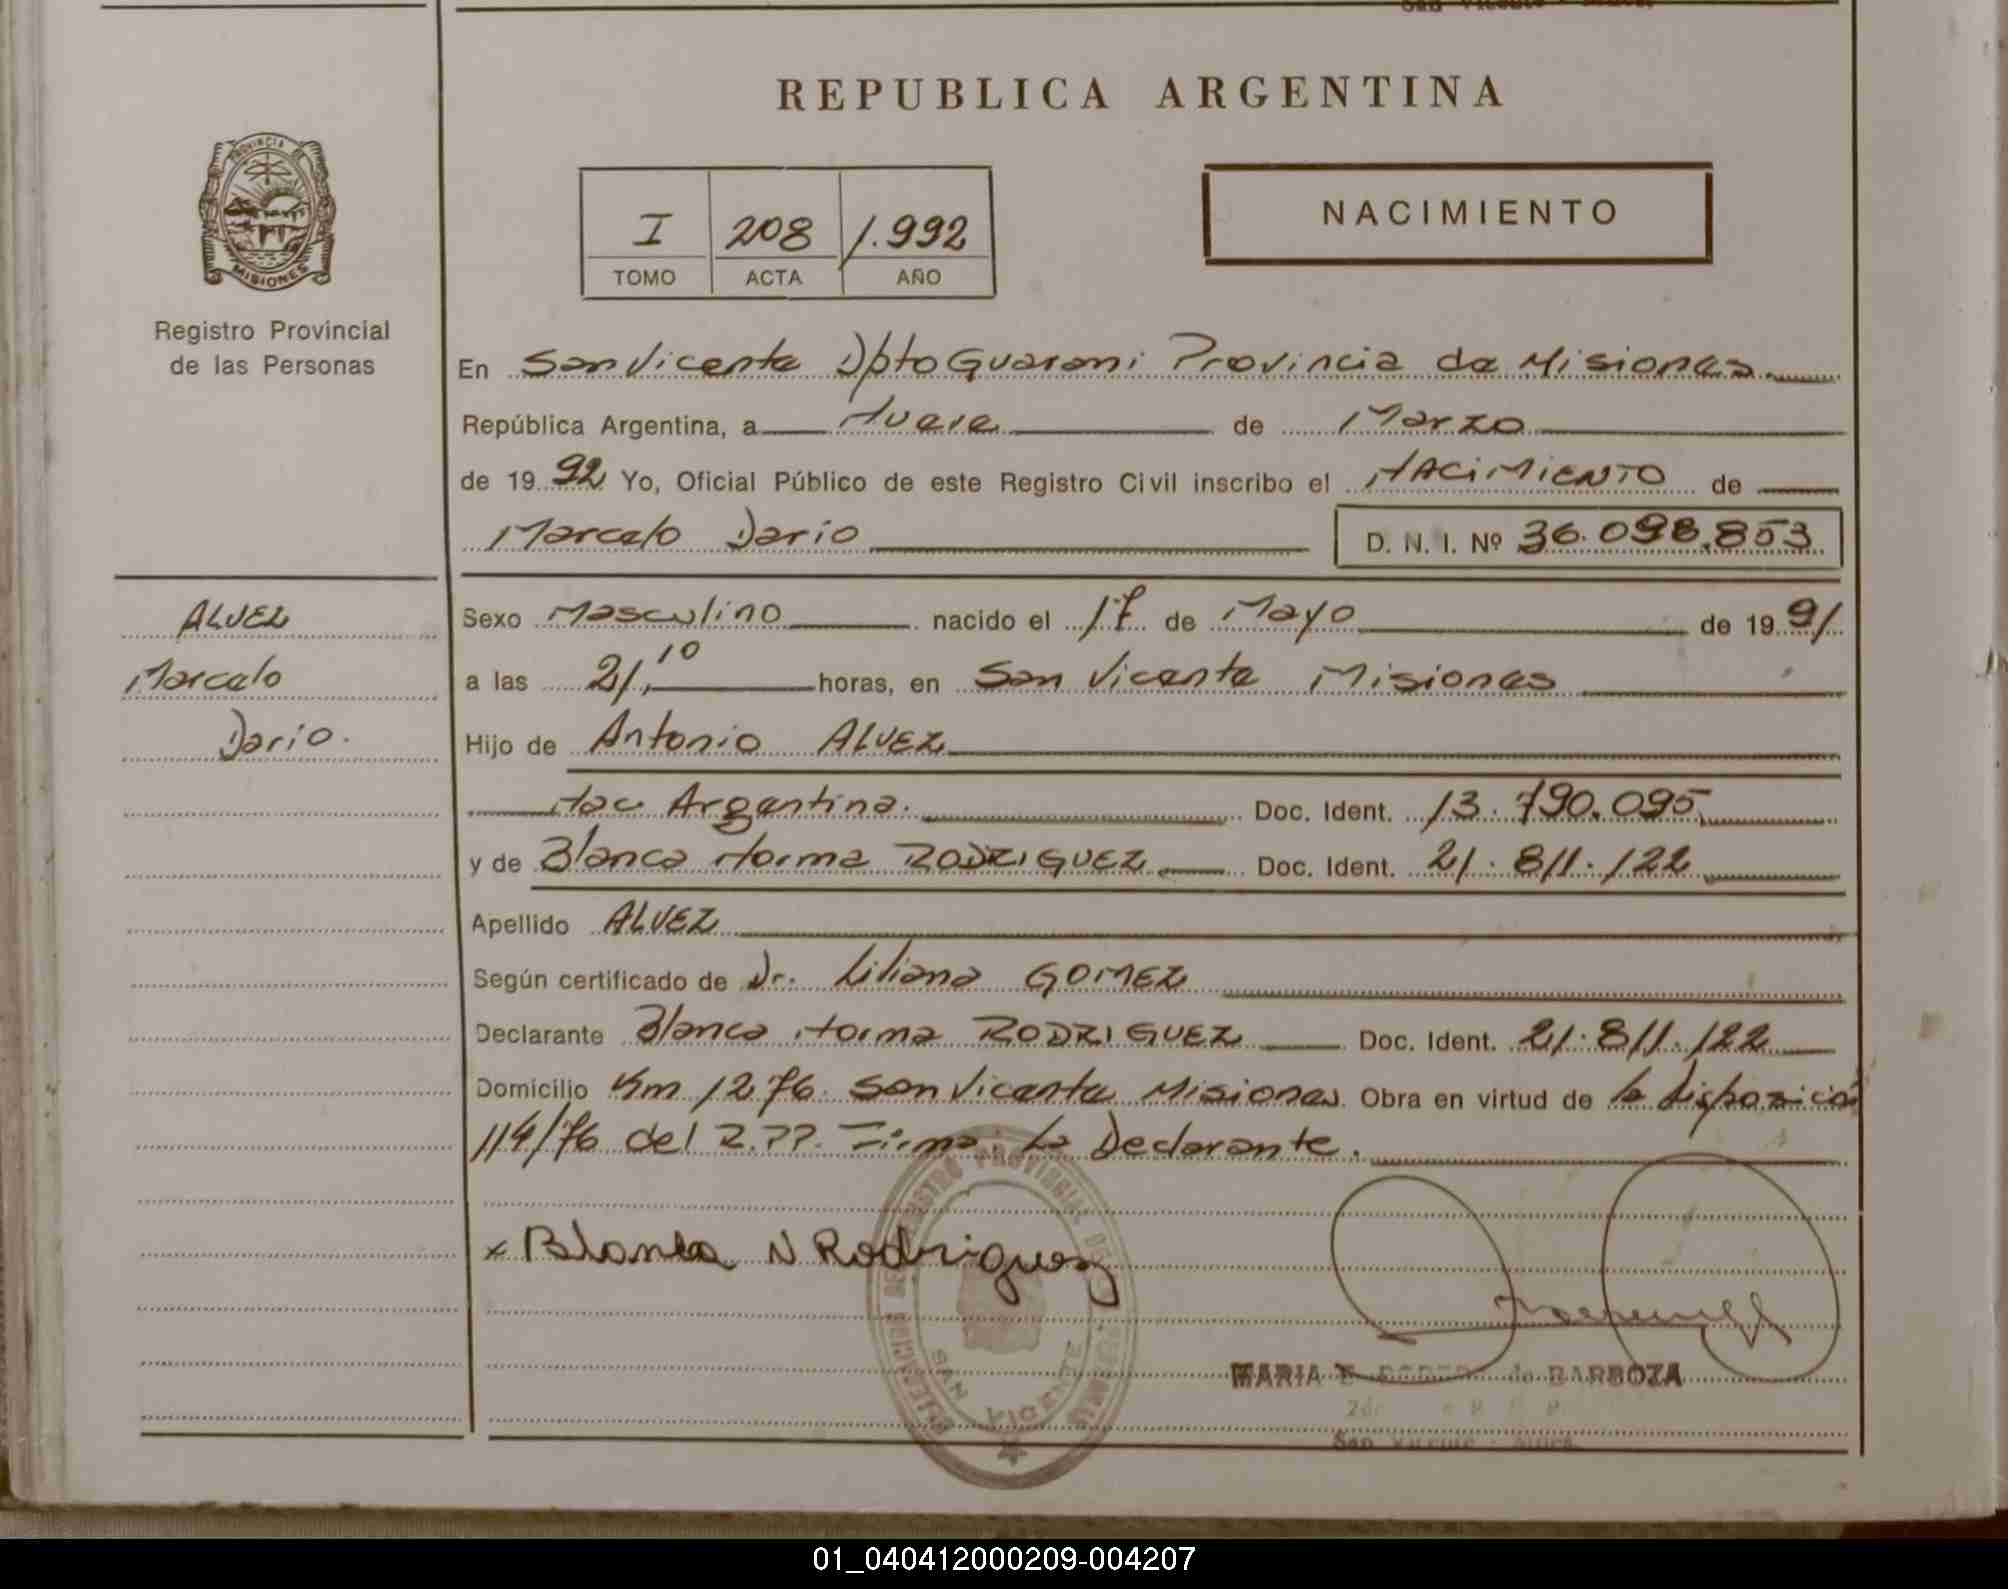 REPUBLICA ARGENTINA
PROVINCIA DE
MISIONES
Registro Provincial
de las Personas
I 208 1.992
TOMO ACTA AÑO
NACIMIENTO
En San Vicente Dpto Guarani Provincia de Misiones.
República Argentina, a Nueve de Marzo
de 1992 Yo, Oficial Público de este Registro Civil inscribo el NACIMIENTO de
Marcelo Dario D. N. I. Nº 36.098.853
ALVEZ
Marcelo
Dario.
Sexo Masculino nacido el 17 de Mayo de 1991
a las 21,10 horas, en San Vicente Misiones
Hijo de Antonio ALVEZ
Nac Argentina. Doc. Ident. 13.790.095
y de Blanca Norma RODRIGUEZ Doc. Ident. 21.811.122
Apellido ALVEZ
Según certificado de Dr. Liliana GOMEZ
Declarante Blanca Norma RODRIGUEZ Doc. Ident. 21.811.122
Domicilio Km 1276 San Vicente Misiones Obra en virtud de la Disposición
114/76 del R.PP. Firma La Declarante.
x Blanca N Rodriguez
REGISTRO PROVINCIAL DE
SAN VICENTE
MARIA E. de BARBOZA
San Vicente
01_040412000209-004207